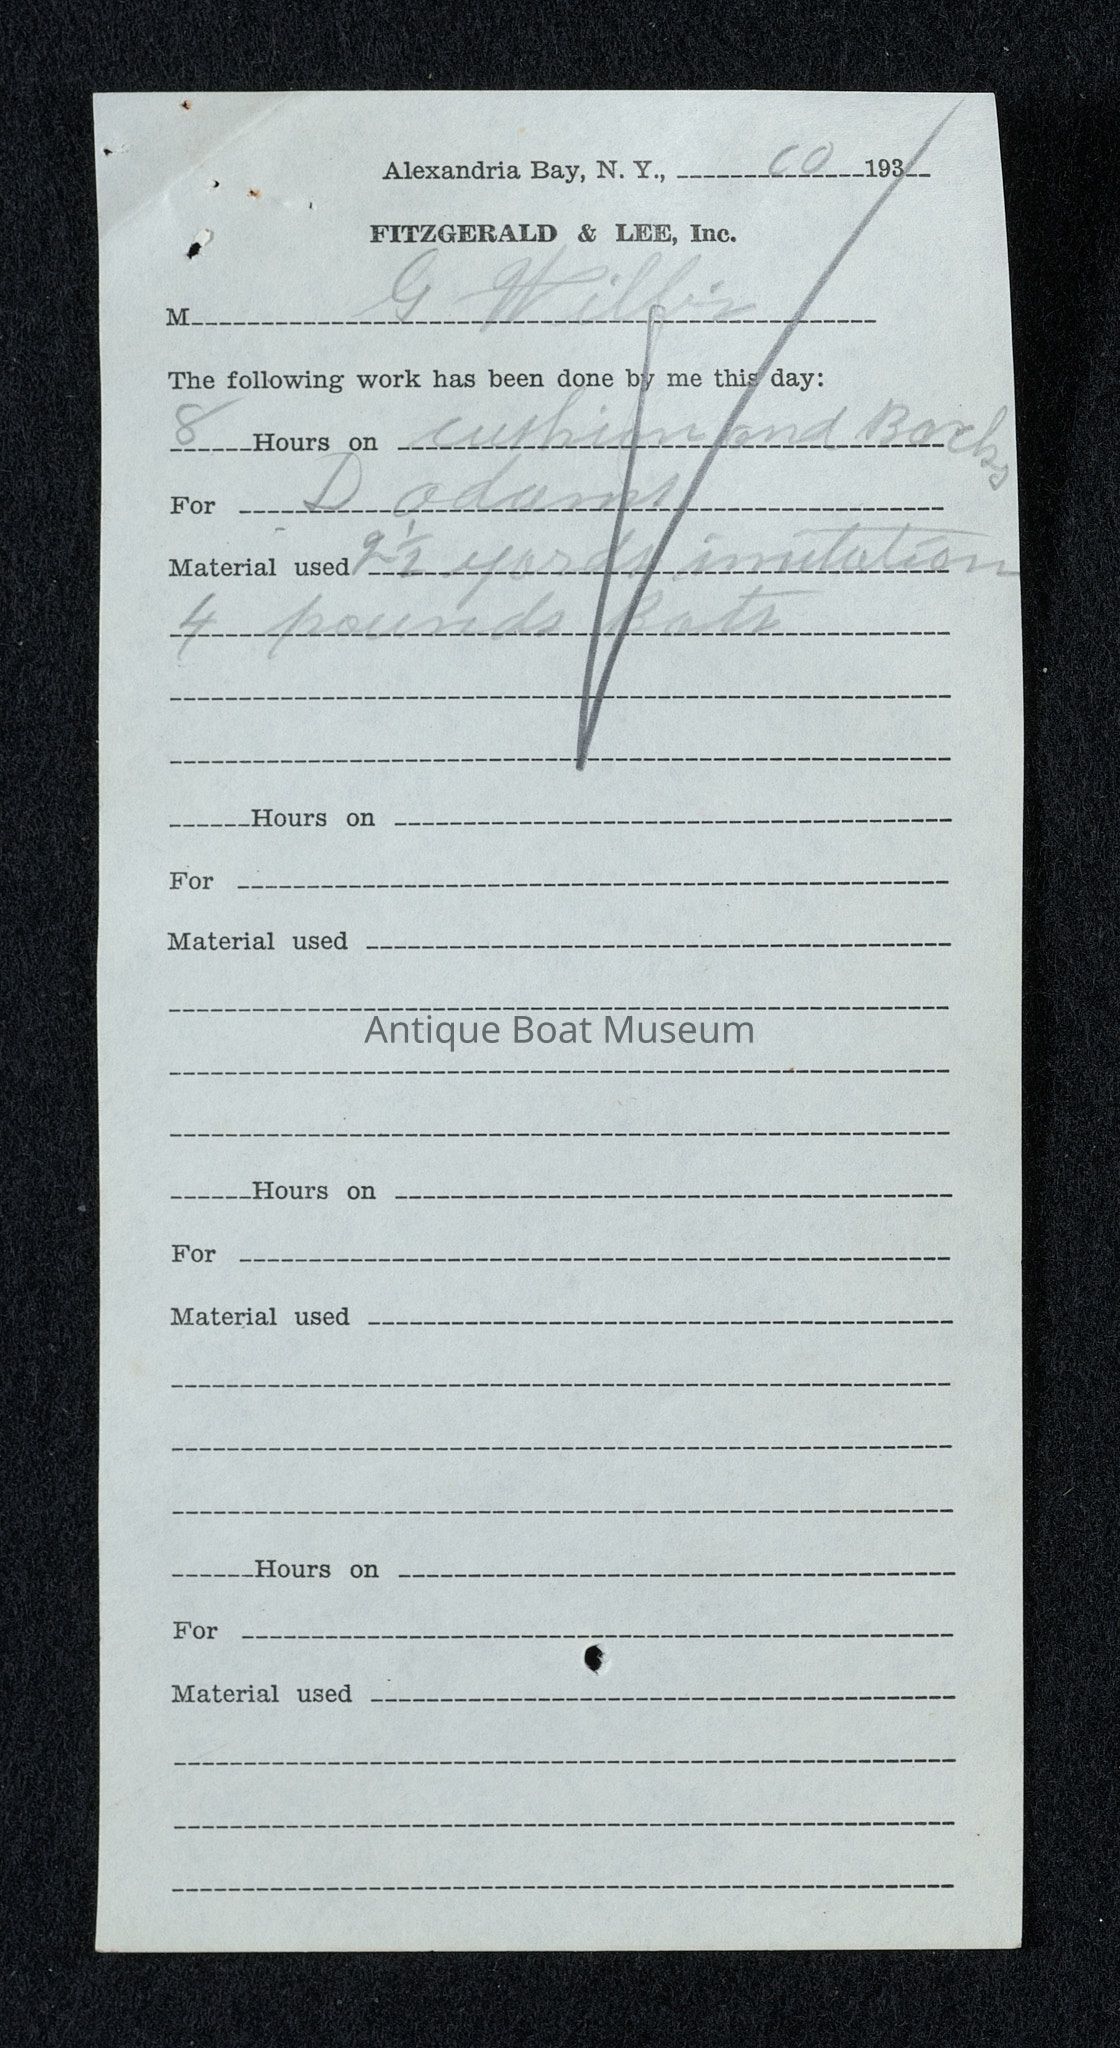 Alexandria Bay, N. Y., CO 193
FITZGERALD & LEE, Inc.
M G
The following work has been done by me this day:
8 Hours on cushion and Backs
For D adams
Material used 2 1/2 yards imitation
4 pounds Bats
Hours on
For
Material used
Antique Boat Museum
Hours on
For
Material used
Hours on
For
Material used